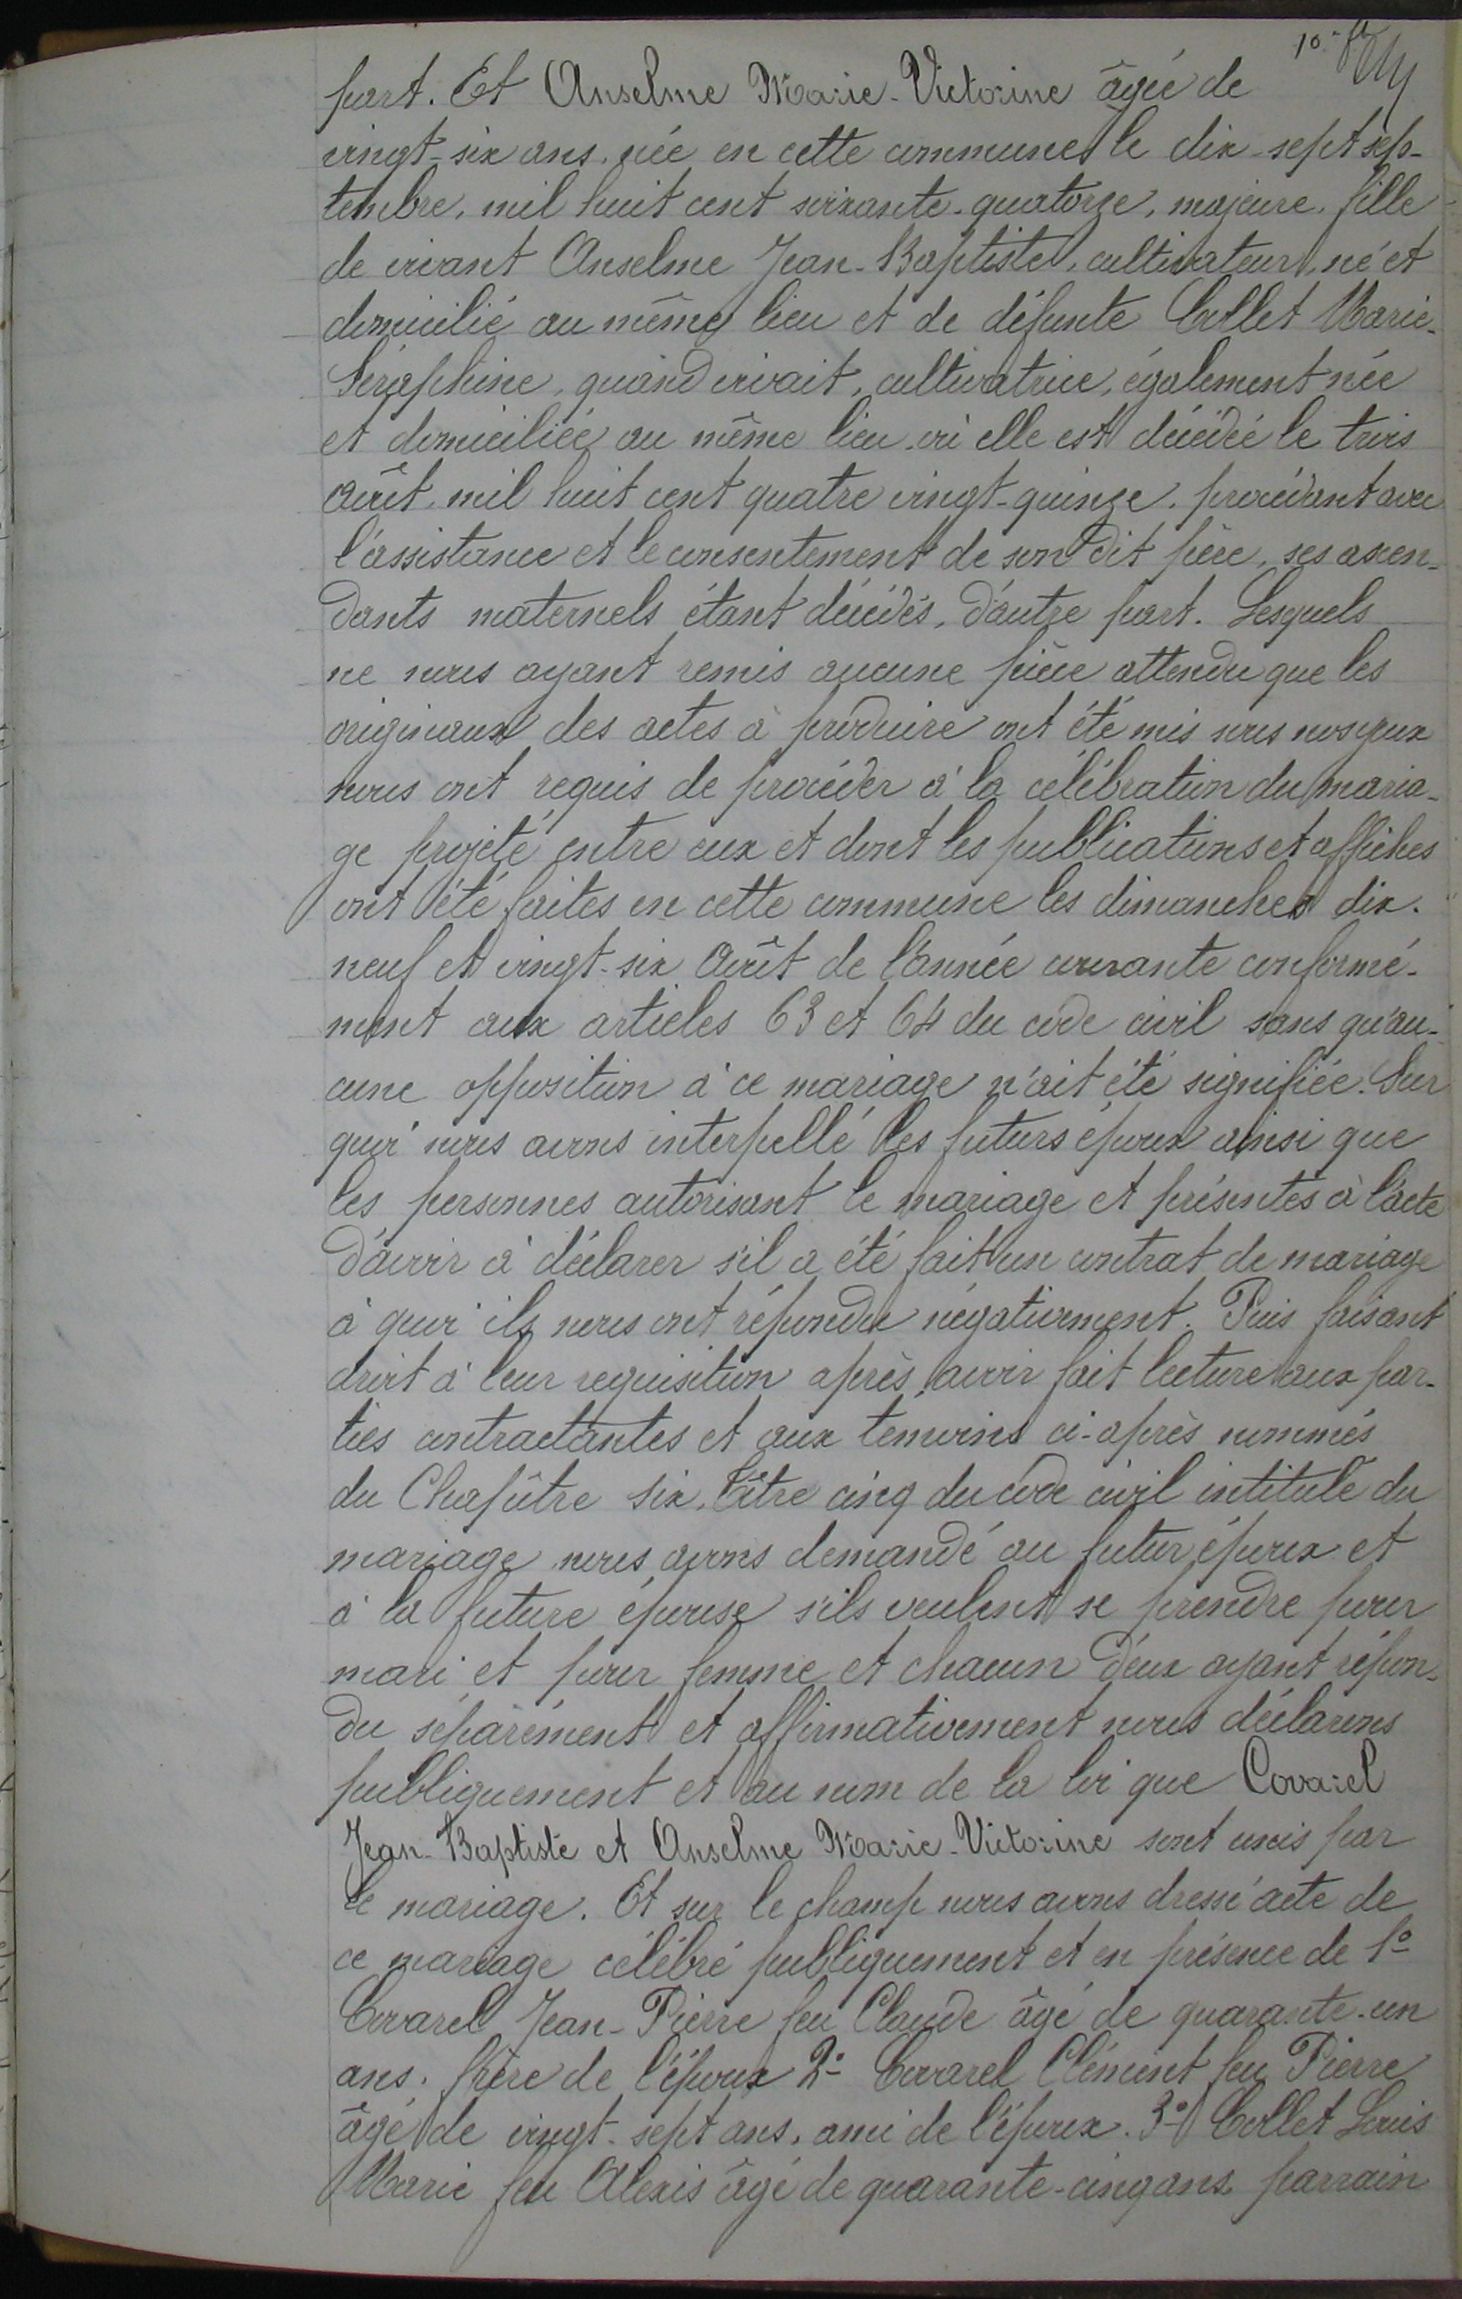 10.
part. Et Anselme Marie-Victorine âgée de
vingt-six ans, née en cette commune le dix-sept sep-
tembre, mil huit cent soixante-quatorze, majeure, fille
de vivant Anselme Jean-Baptiste, cultivateur, né et
domicilié au même lieu et de défunte Collet Marie-
Séraphine, quand vivait, cultivatrice, également née
et domiciliée au même lieu où elle est décédée le trois
Août mil huit cent quatre vingt-quinze, procédant avec
l'assistance et le consentement de son dit père, ses ascen-
dants maternels étant décédés, d'autre part. Lesquels
ne nous ayant remis aucune pièce attendu que les
originaux des actes à produire ont été mis sous nos yeux
nous ont requis de procéder à la célébration du maria-
ge projeté entre eux et dont les publications et affiches
ont été faites en cette commune les dimanches dix-
neuf et vingt-six Août de l'année courante conformé-
ment aux articles 63 et 64 du code civil sans qu'au-
cune opposition à ce mariage n'ait été signifiée. Sur
quoi nous avons interpellé les futurs époux ainsi que
les personnes autorisant le mariage et présentes à l'acte
d'avoir à déclarer s'il a été fait un contrat de mariage
à quoi ils nous ont répondu négativement. Puis faisant
droit à leur requisition après avoir fait lecture aux par-
ties contractantes et aux témoins ci-après nommés
du Chapître six, titre cinq du code civil intitulé du
mariage nous avons demandé au futur époux et
à la future épouse s'ils veulent se prendre pour
mari et pour femme et chacun d'eux ayant répon-
du séparément et affirmativement nous déclarons
publiquement et au nom de la loi que Covarel
Jean-Baptiste et Anselme Marie-Victorine sont unis par
le mariage. Et sur le champ nous avons dressé acte de
ce mariage célébré publiquement et en présence de 1º
Covarel Jean-Pierre feu Claude âgé de quarante-un
ans, frère de l'époux 2º Covarel Clément feu Pierre
âgé de vingt-sept ans, ami de l'époux. 3º Collet Louis
Marie feu Alexis âgé de quarante-cinq ans parrain